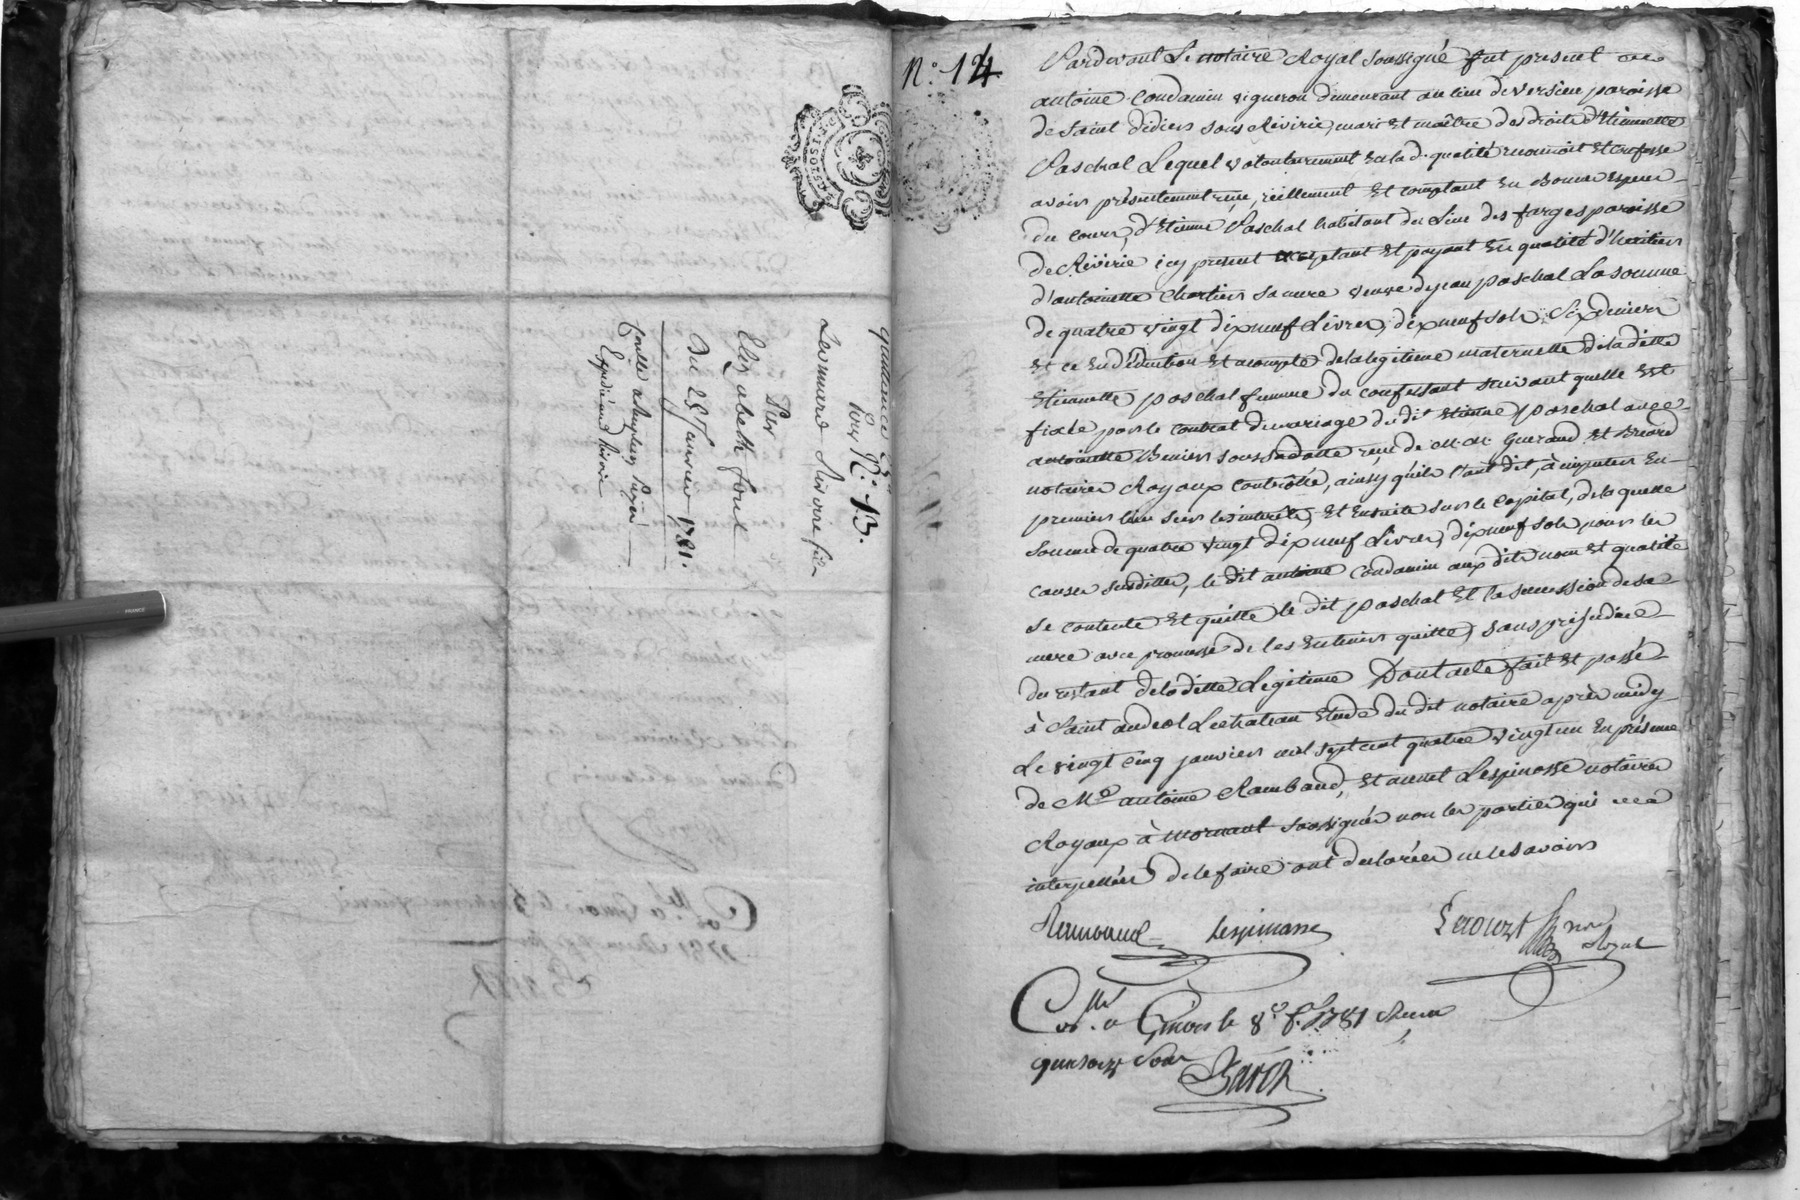 quittance
sous N.° 13.
Leonnard Riviere fils
Par
Elizabeth foul
Du 25 Janvier 1781.
Expédié
N.° 14.
Pardevant Le notaire Royal soussigné fut present
antoine condamin vigneron demeurant au lieu de versieu paroisse
de saint didier sous Riverie, mari et maître des droits d'Etiennette
Paschal Lequel volontairement en lad. qualité reconnoit et confesse
avoir présentement reçu, réellement et comptant en bonnes especes
du cours, d'Etienne Paschal habitant du Lieu des farges paroisse
de Riverie icy present acceptant et payant en qualité d'heritier
d'antoinette Chartier sa mere veuve de jean paschal La somme
de quatre vingt dix neuf Livres, dix neuf sols, six deniers
et ce en déduction et acompte de la legitime maternelle de ladite
Etiennette paschal femme du confessant suivant quelle est
fixée par le contrat de mariage du dit Etienne paschal avec
antoinette sous sa datte reçu de M.M. Guerand et Briard
notaires Royaux contrôlé, ainsy qu'ils l'ont dit, à imputer en
premier lieu sur les intérêts, et ensuite sur le capital, de laquelle
somme de quatre vingt dix neuf Livres, dix neuf sols, pour les
causes susdittes, le dit antoine condamin aux dits nom et qualité
se contente et quitte le dit paschal et la succession de sa
mere avec promesse de les en tenir quitte, sans prejudice
du restant de la ditte Legitime Dont acte fait et passé
à Saint andeol Le chateau Etude du dit notaire après midy
Le vingt cinq janvier mil sept cent quatre vingt un En présence
de M.e antoine Rambaud, et annet Lespinasse notaires
Royaux à Mornant soussignés non les parties qui de ce
interpellées de le faire ont declarées ne le savoir
Lespinasse
not.re Royal
Con.llé a Givors le 8.e f. 1781 Reçu
quatorze sols